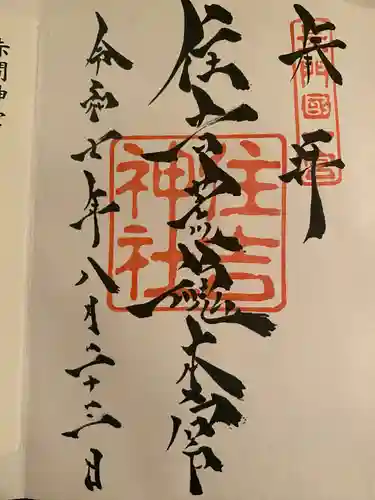 奉拝
長門國一宮
住吉荒魂本宮
住吉神社
令和七年八月二十三日
赤間神宮